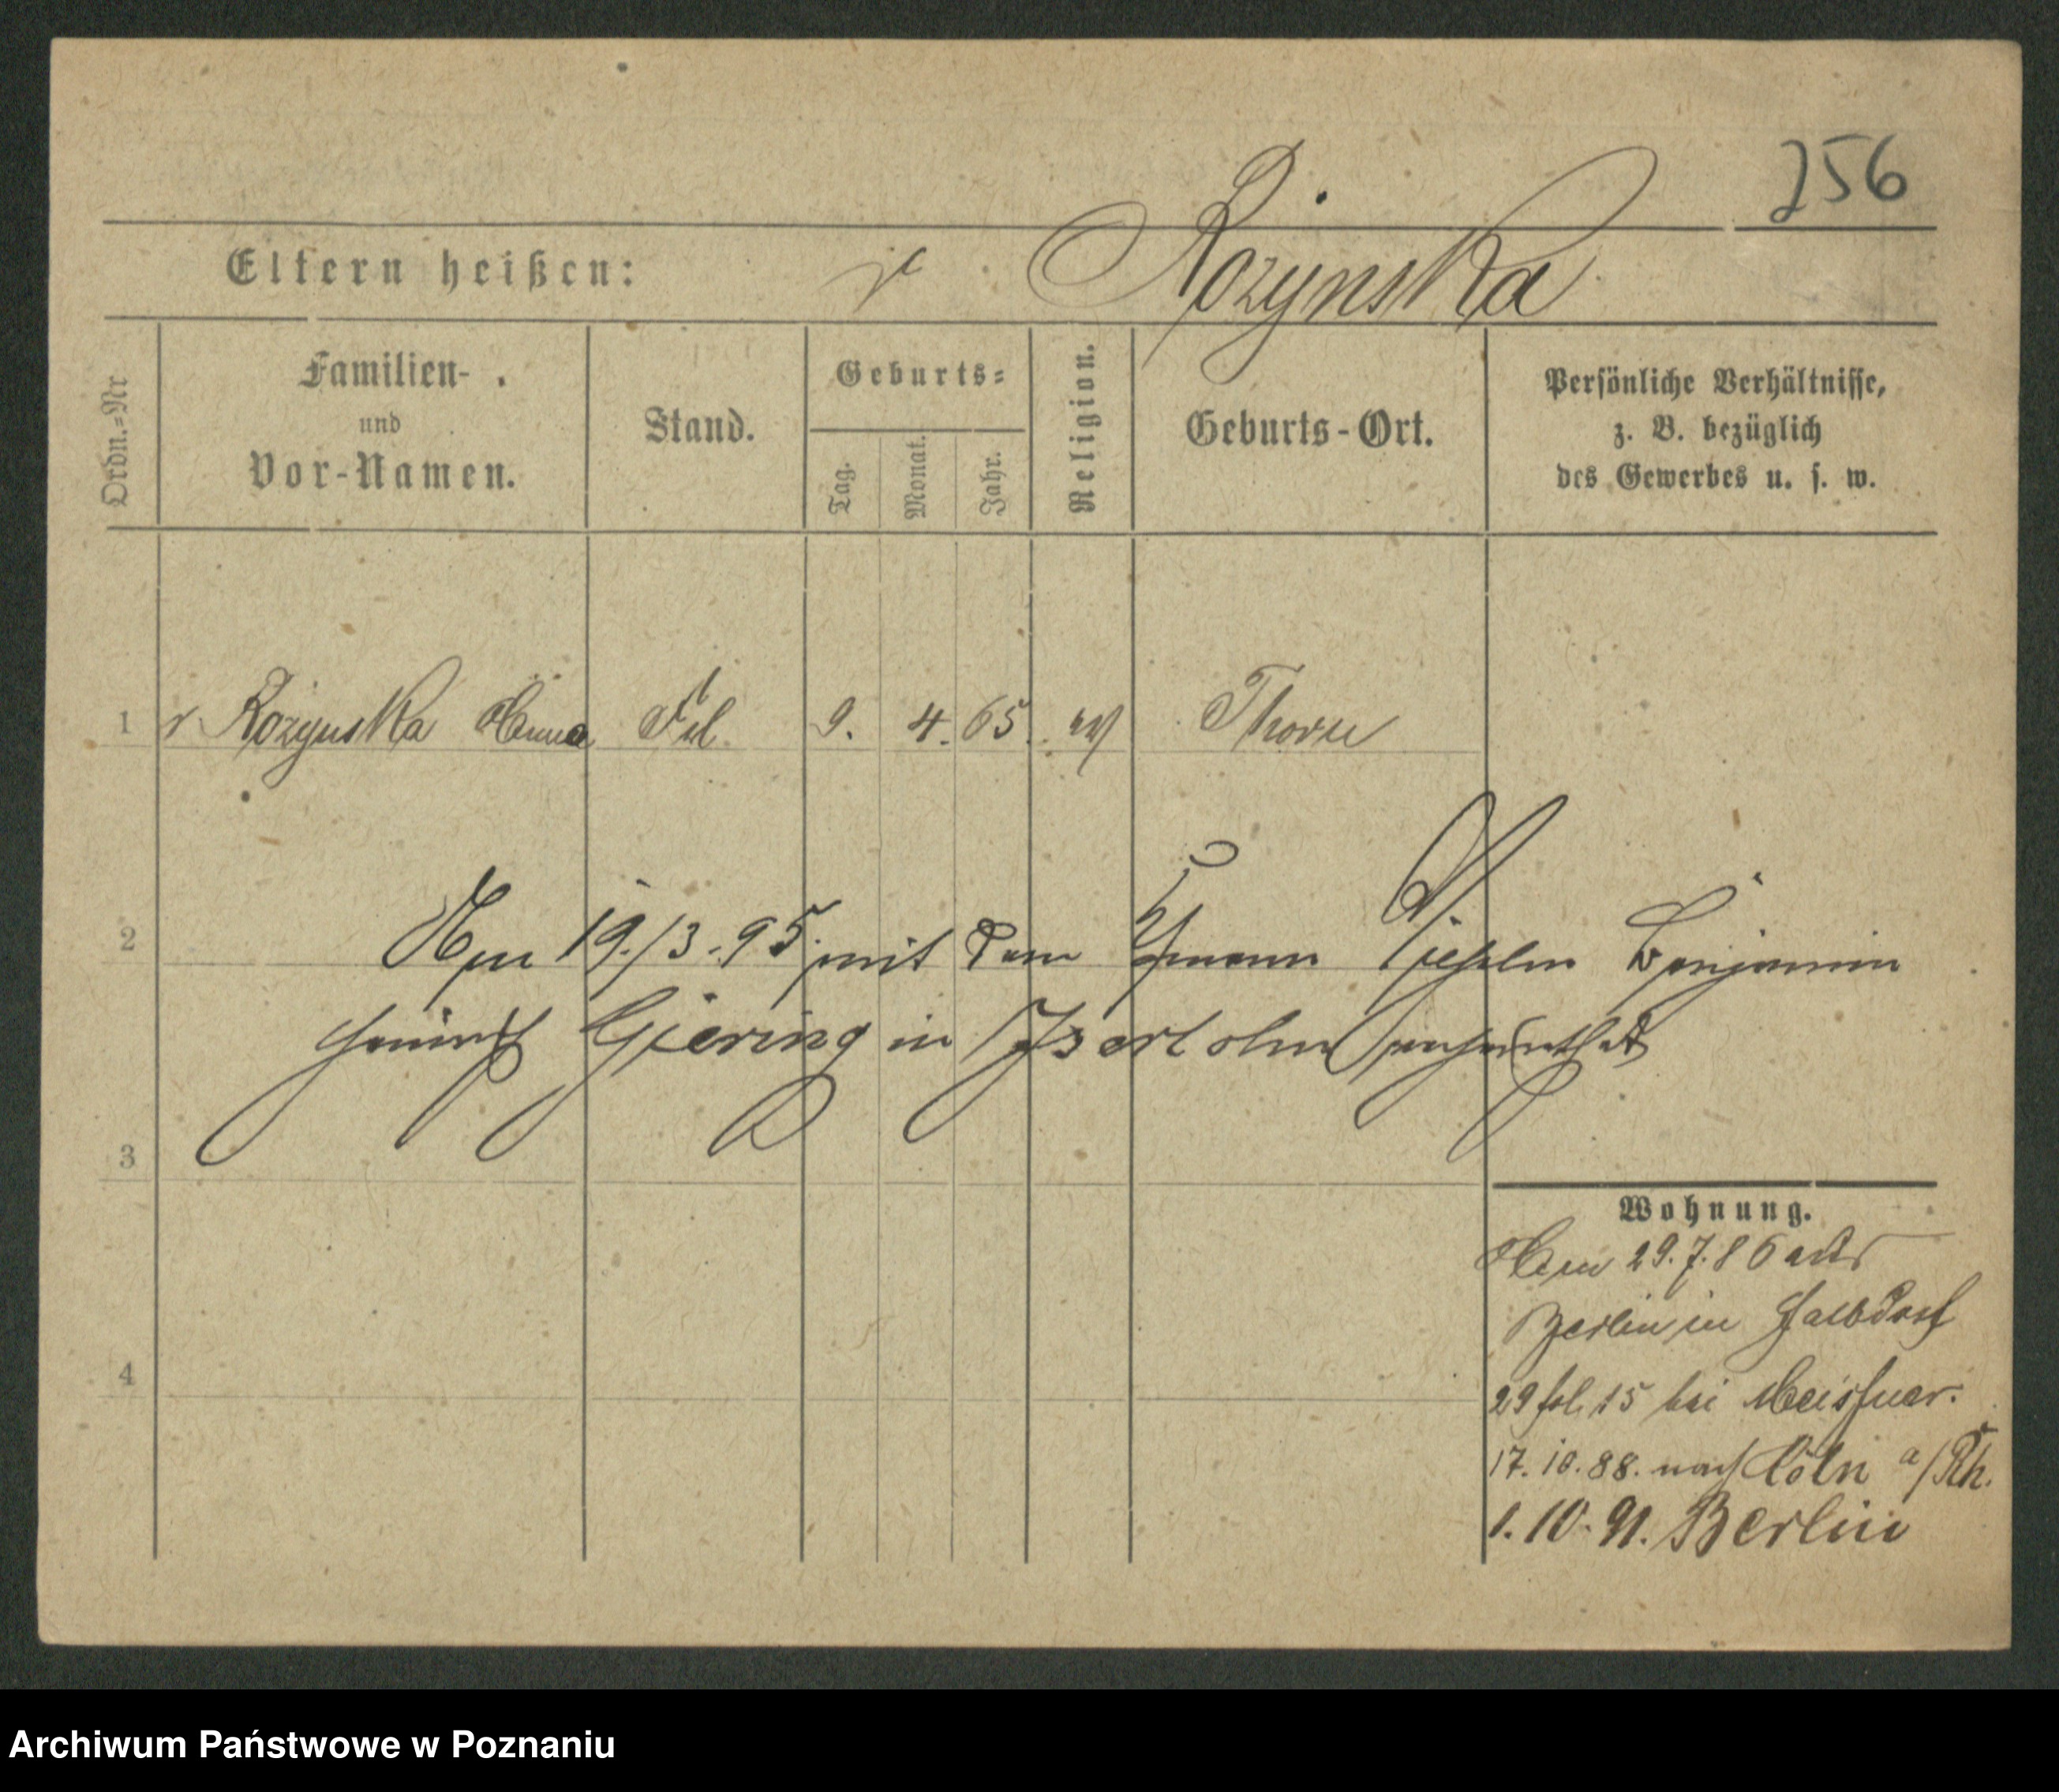 256
Eltern heißen: v. Rożynska
Ordn.=Nr
Familien-
und
Vor-Namen.
Stand.
Geburts=
Tag.
Monat.
Jahr.
Religion.
Geburts-Ort.
Persönliche Verhältnisse,
z. B. bezüglich
des Gewerbes u. s. w.
1 v. Rożynska Anna Frl. 9. 4. 65. ev Thorn
2 Am 19./3.95 mit dem Benjamin
Heinrich Giering in Iserlohn verheirathet
3
4
Wohnung.
Am 29.7.86 aus
Berlin in Halbdorf
29 fol. 15 bei Meissner.
17.10.88. nach Cöln a/Rh.
1.10.91. Berlin
Archiwum Państwowe w Poznaniu